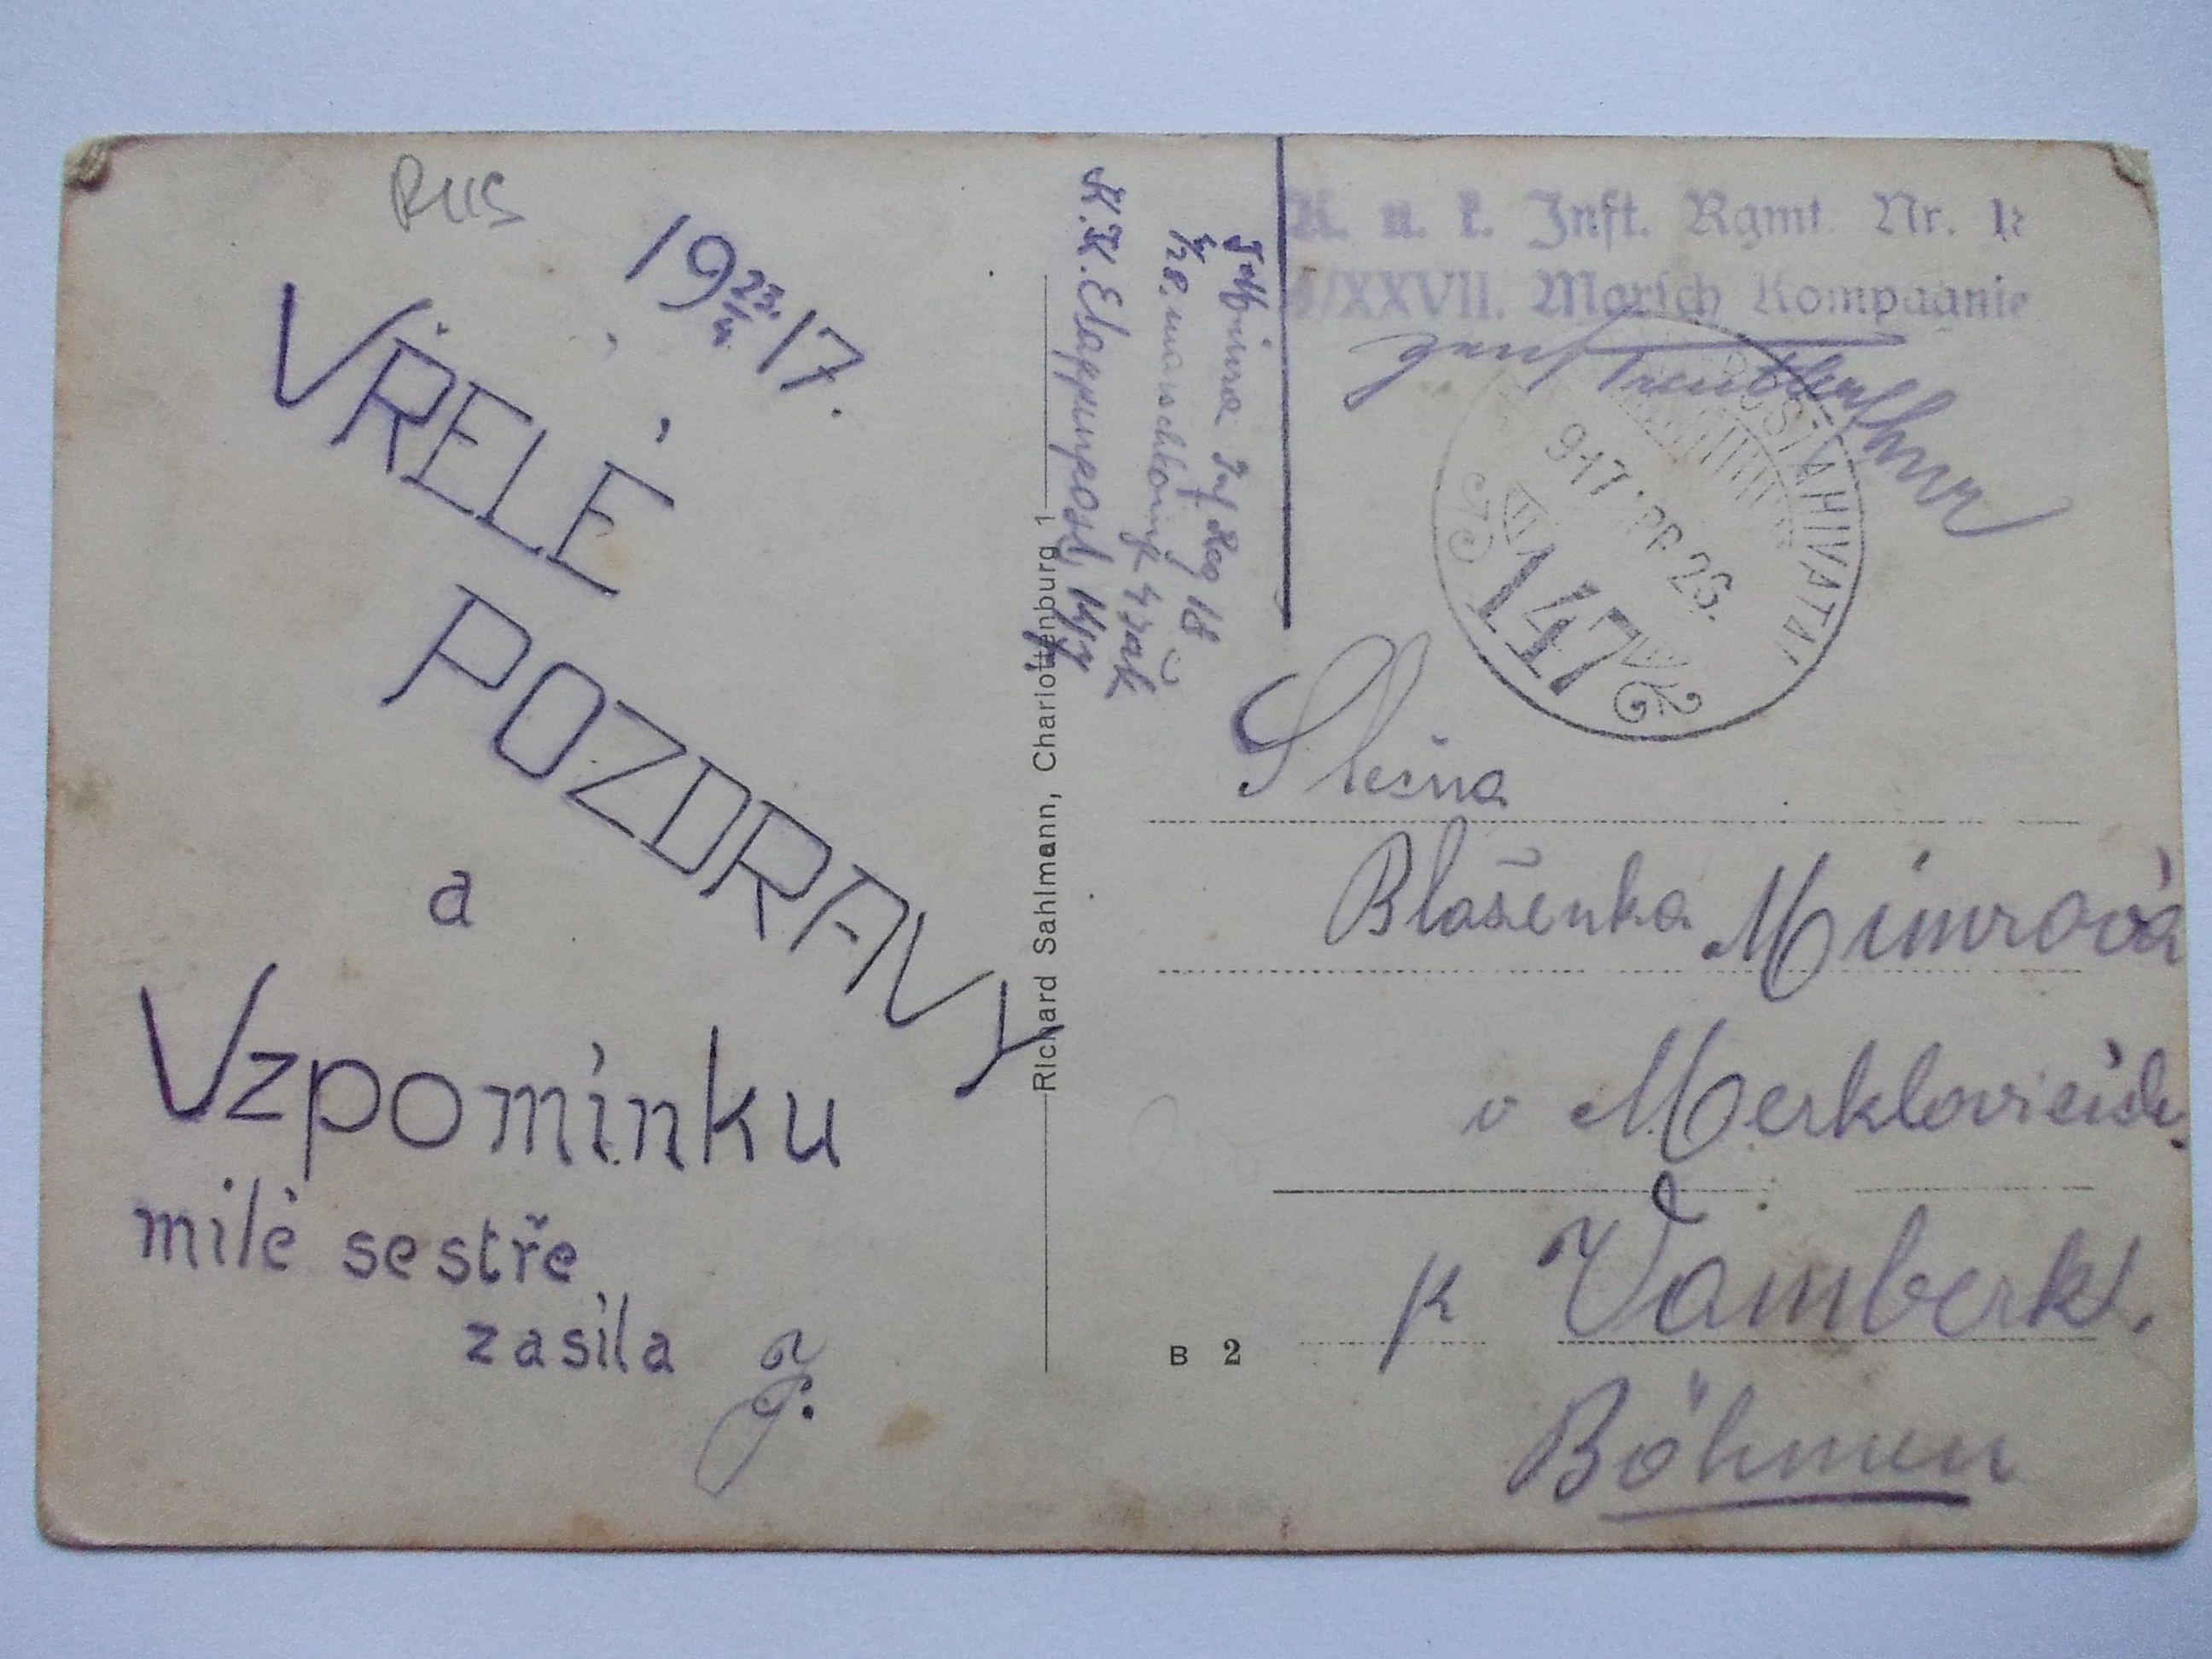 RUS
19 23./4. 17.
VŘELÉ
POZDRAVY
a
Vzpomínku
milé sestře
zasílá J.
Richard Sahlmann, Charlottenburg 1
Inf Reg 18
K.K. Etappenpost 147
K. u. k. Inft. Rgmt. Nr.
/XXVII. Marsch Kompagnie
POSTAHIVATAL
917 APR 26.
147
Slečna
Blaženka Mimrová
v Merklovicích.
p Vamberk.
Böhmen
B 2